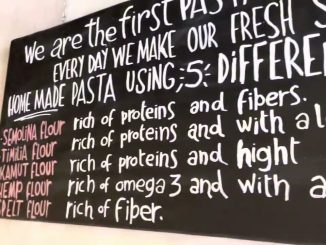 We are the first PAST
EVERY DAY WE MAKE OUR FRESH S
HOME MADE PASTA USING ;5: DIFFERE
-SEMOLINA FLOUR rich of proteins and fibers.
TIMILIA FLOUR rich of proteins and with a l
KAMUT FLOUR rich of proteins and hight
HEMP FLOUR rich of omega 3 and with a
SPELT FLOUR rich of fiber.